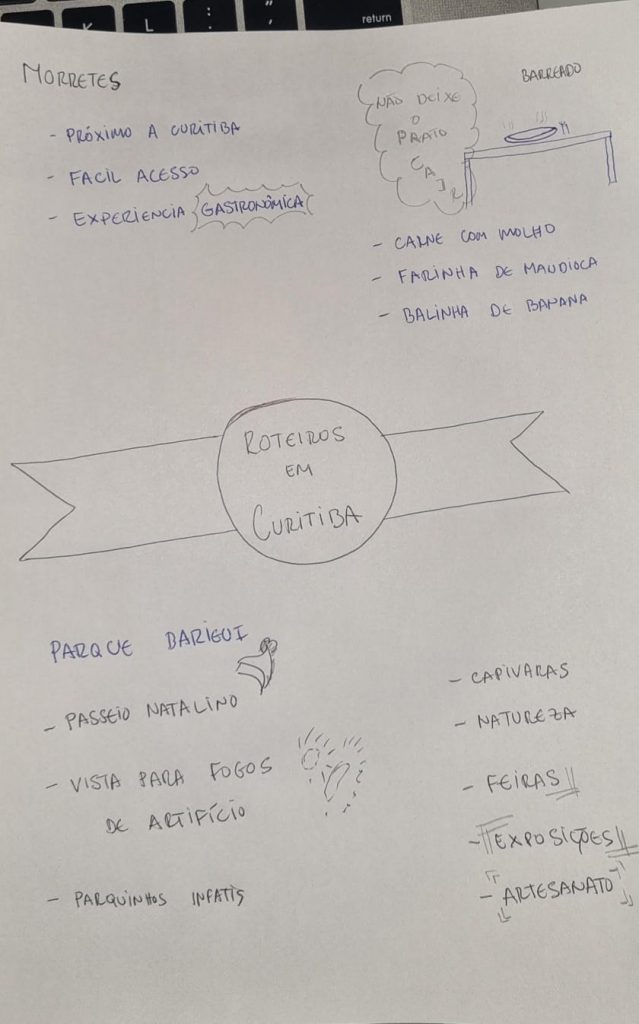 K
L
:
;
"
,
return
MORRETES
- PRÓXIMO A CURITIBA
- FACIL ACESSO
- EXPERIENCIA GASTRONÔMICA
NÃO DEIXE
O
PRATO
CAIR
BARREADO
- CARNE COM MOLHO
- FARINHA DE MANDIOCA
- BALINHA DE BANANA
ROTEIROS
EM
CURITIBA
PARQUE BARIGUI
- PASSEIO NATALINO
- VISTA PARA FOGOS
DE ARTIFÍCIO
- PARQUINHOS INFATIS
- CAPIVARAS
- NATUREZA
- FEIRAS
- EXPOSIÇÕES
- ARTESANATO